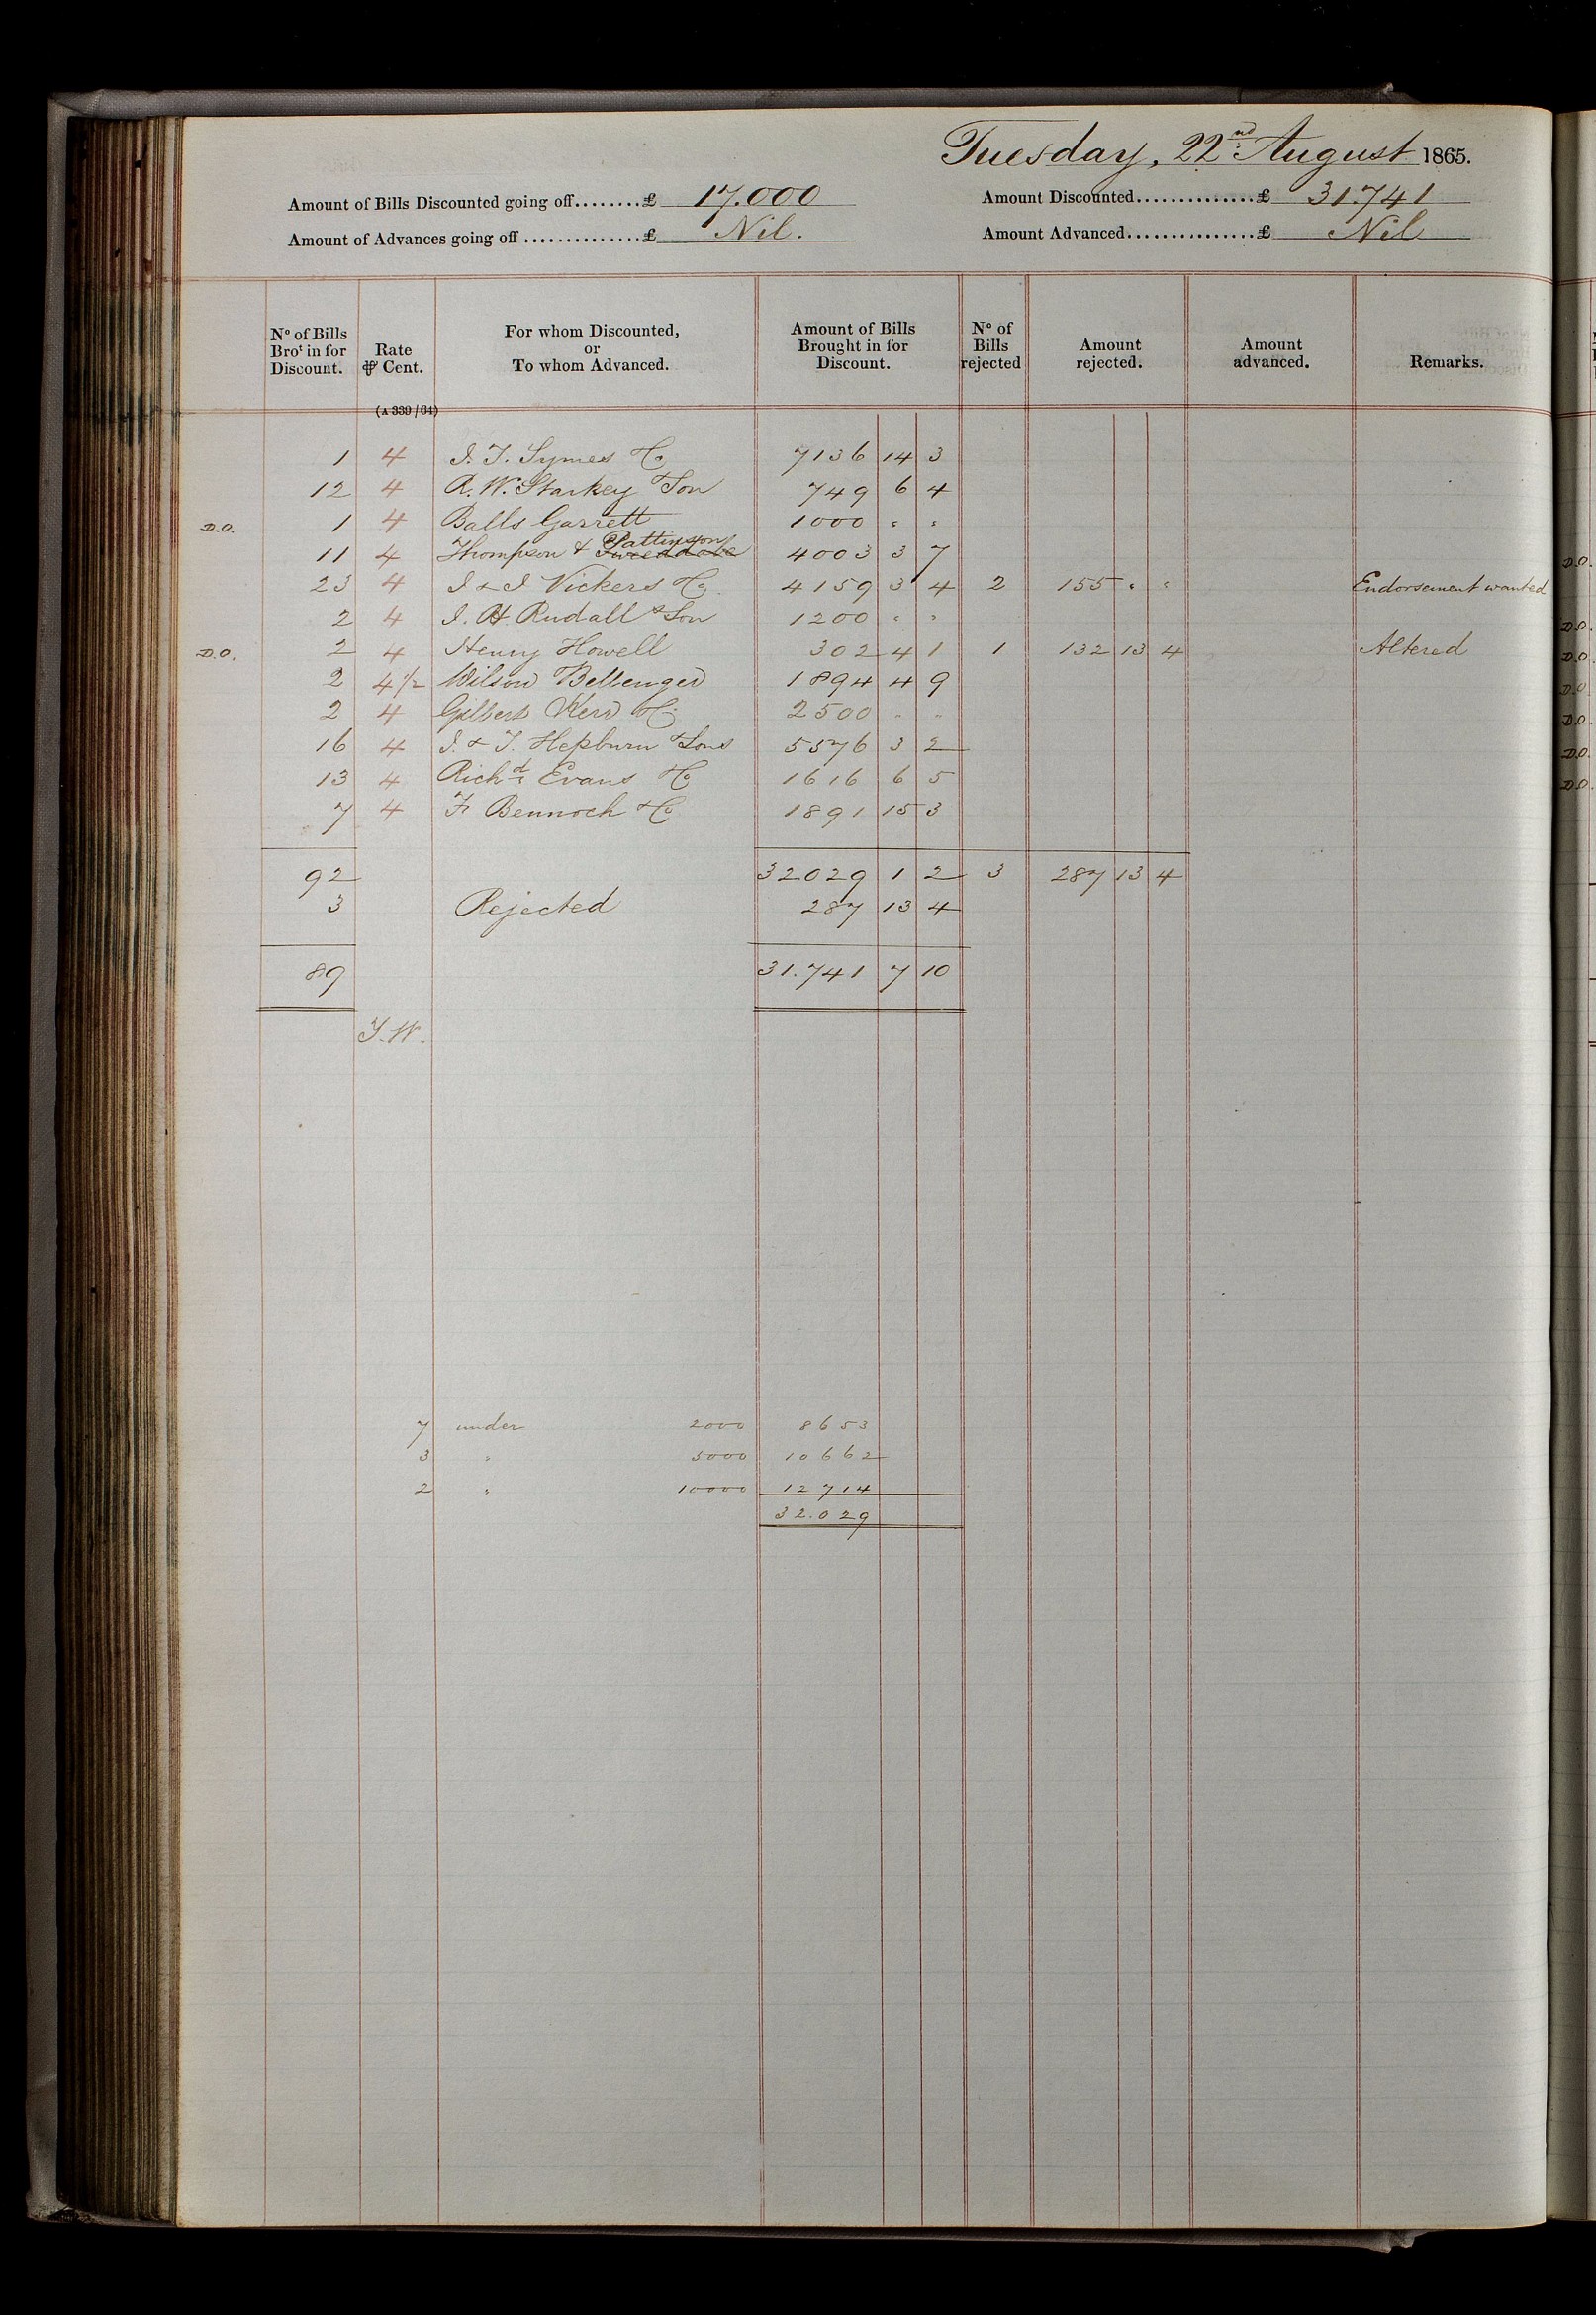 Tuesday, 22nd August 1865.
Amount of Bills Discounted going off........£ 17.000
Amount Discounted..............£ 31.741
Amount of Advances going off..............£ Nil.
Amount Advanced...............£ Nil
No of Bills Brot in for Discount. Rate ⅌ Cent. For whom Discounted, or To whom Advanced. Amount of Bills Brought in for Discount. No of Bills rejected Amount rejected. Amount advanced. Remarks.
(A 339/64)
1 4 J. T. Symes & Co 7136 14 3
12 4 R. W. Starkey & Son 749 6 4
D.O. 1 4 Balls Garrett 1000 " "
11 4 Thompson & Pattinson 4003 3 7
23 4 J & J Vickers & Co. 4159 3 4 2 155 " " Endorsement wanted
2 4 J. H. Rudall & Son 1200 " "
D.O. 2 4 Henry Howell 302 4 1 1 132 13 4 Altered
2 4½ Wilson Bellenger 1894 4 9
2 4 Gilbert Kerr & Co 2500 " "
16 4 J. & T. Hepburn & Sons 5576 3 2
13 4 Richd Evans & Co 1616 6 5
7 4 F. Bennoch & Co 1891 15 3
92 32029 1 2 3 287 13 4
3 Rejected 287 13 4
89 31.741 7 10
7 under 2000 8653
3 " 5000 10662
2 " 10000 12714
32.029
D.O.
D.O.
D.O.
D.O.
D.O.
D.O.
D.O.